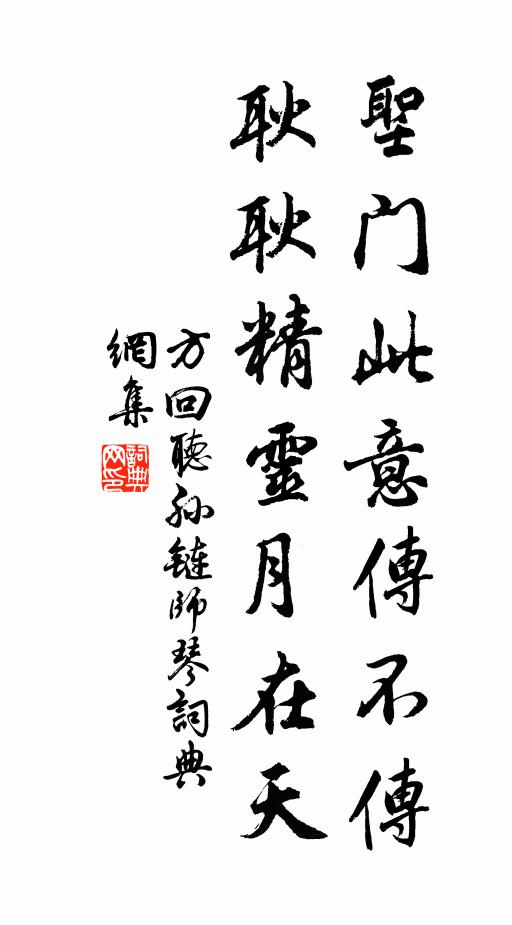 聖門此意傳不傳
耿耿精靈月在天
方回聽孙鏈師琴詞典
網集
詞典
网印